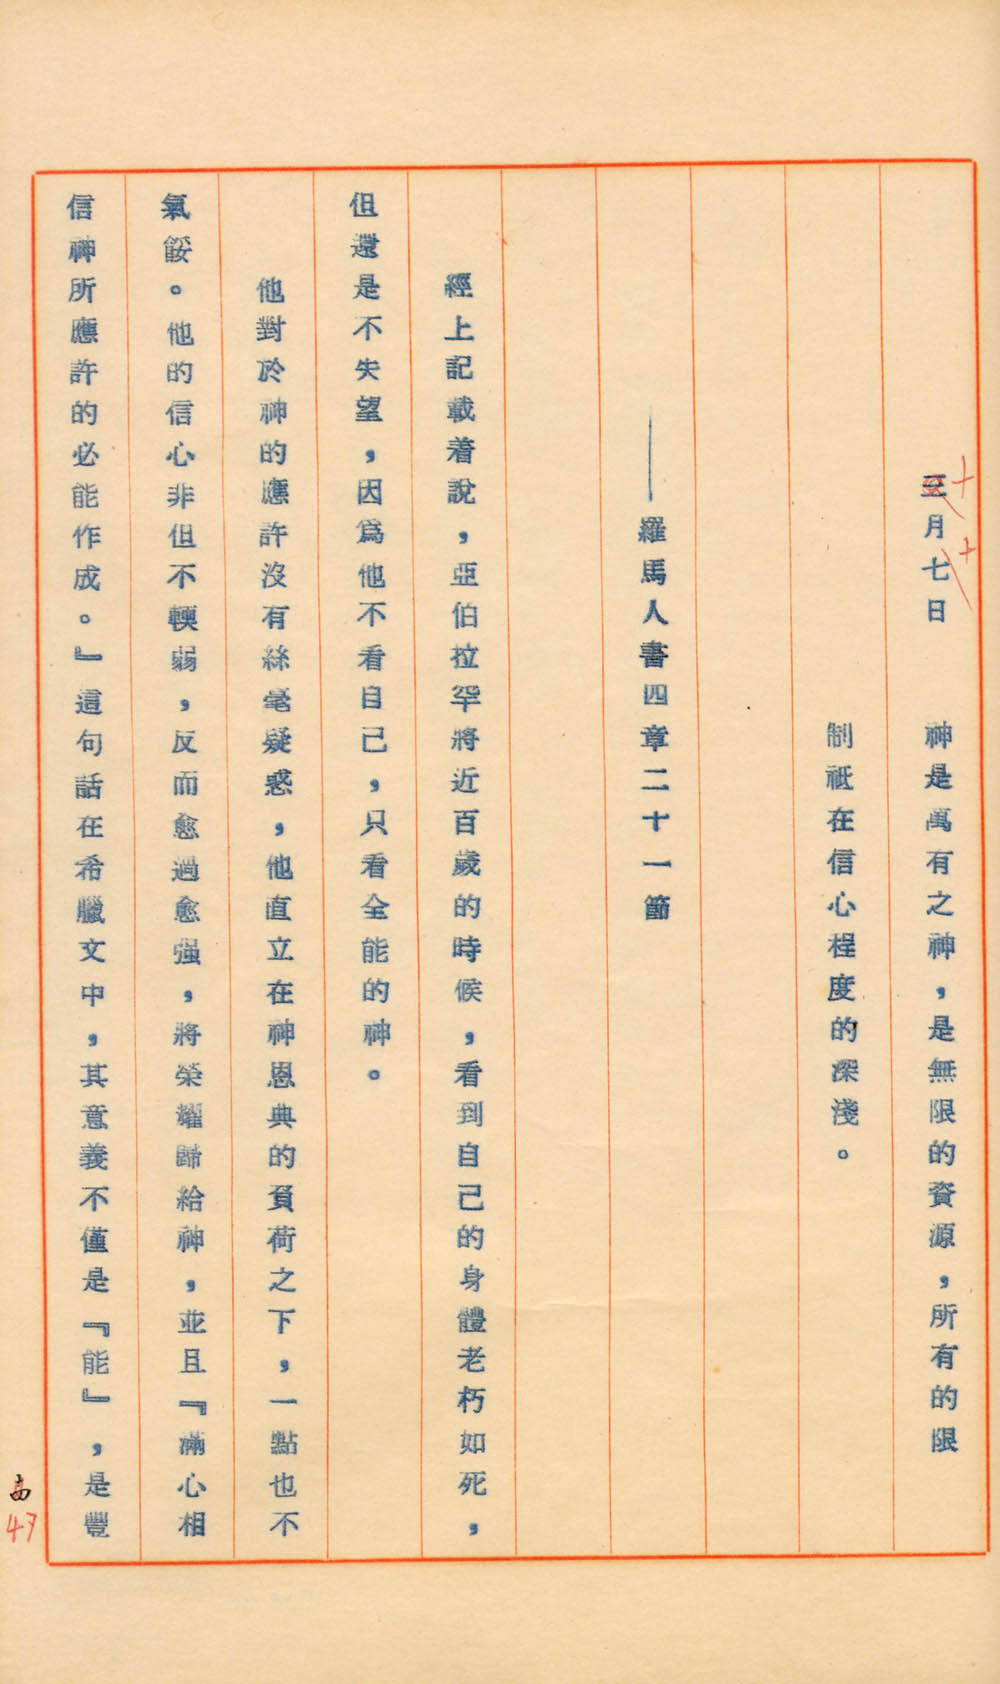 三月七日　神是萬有之神，是無限的資源，所有的限
制祗在信心程度的深淺。
——羅馬人書四章二十一節
經上記載着說，亞伯拉罕將近百歲的時候，看到自己的身體老朽如死，
但還是不失望，因爲他不看自己，只看全能的神。
他對於神的應許沒有絲毫疑惑，他直立在神恩典的負荷之下，一點也不
氣餒。他的信心非但不輭弱，反而愈過愈强，將榮耀歸給神，並且『滿心相
信神所應許的必能作成。』這句話在希臘文中，其意義不僅是『能』，是豐
十
十
47